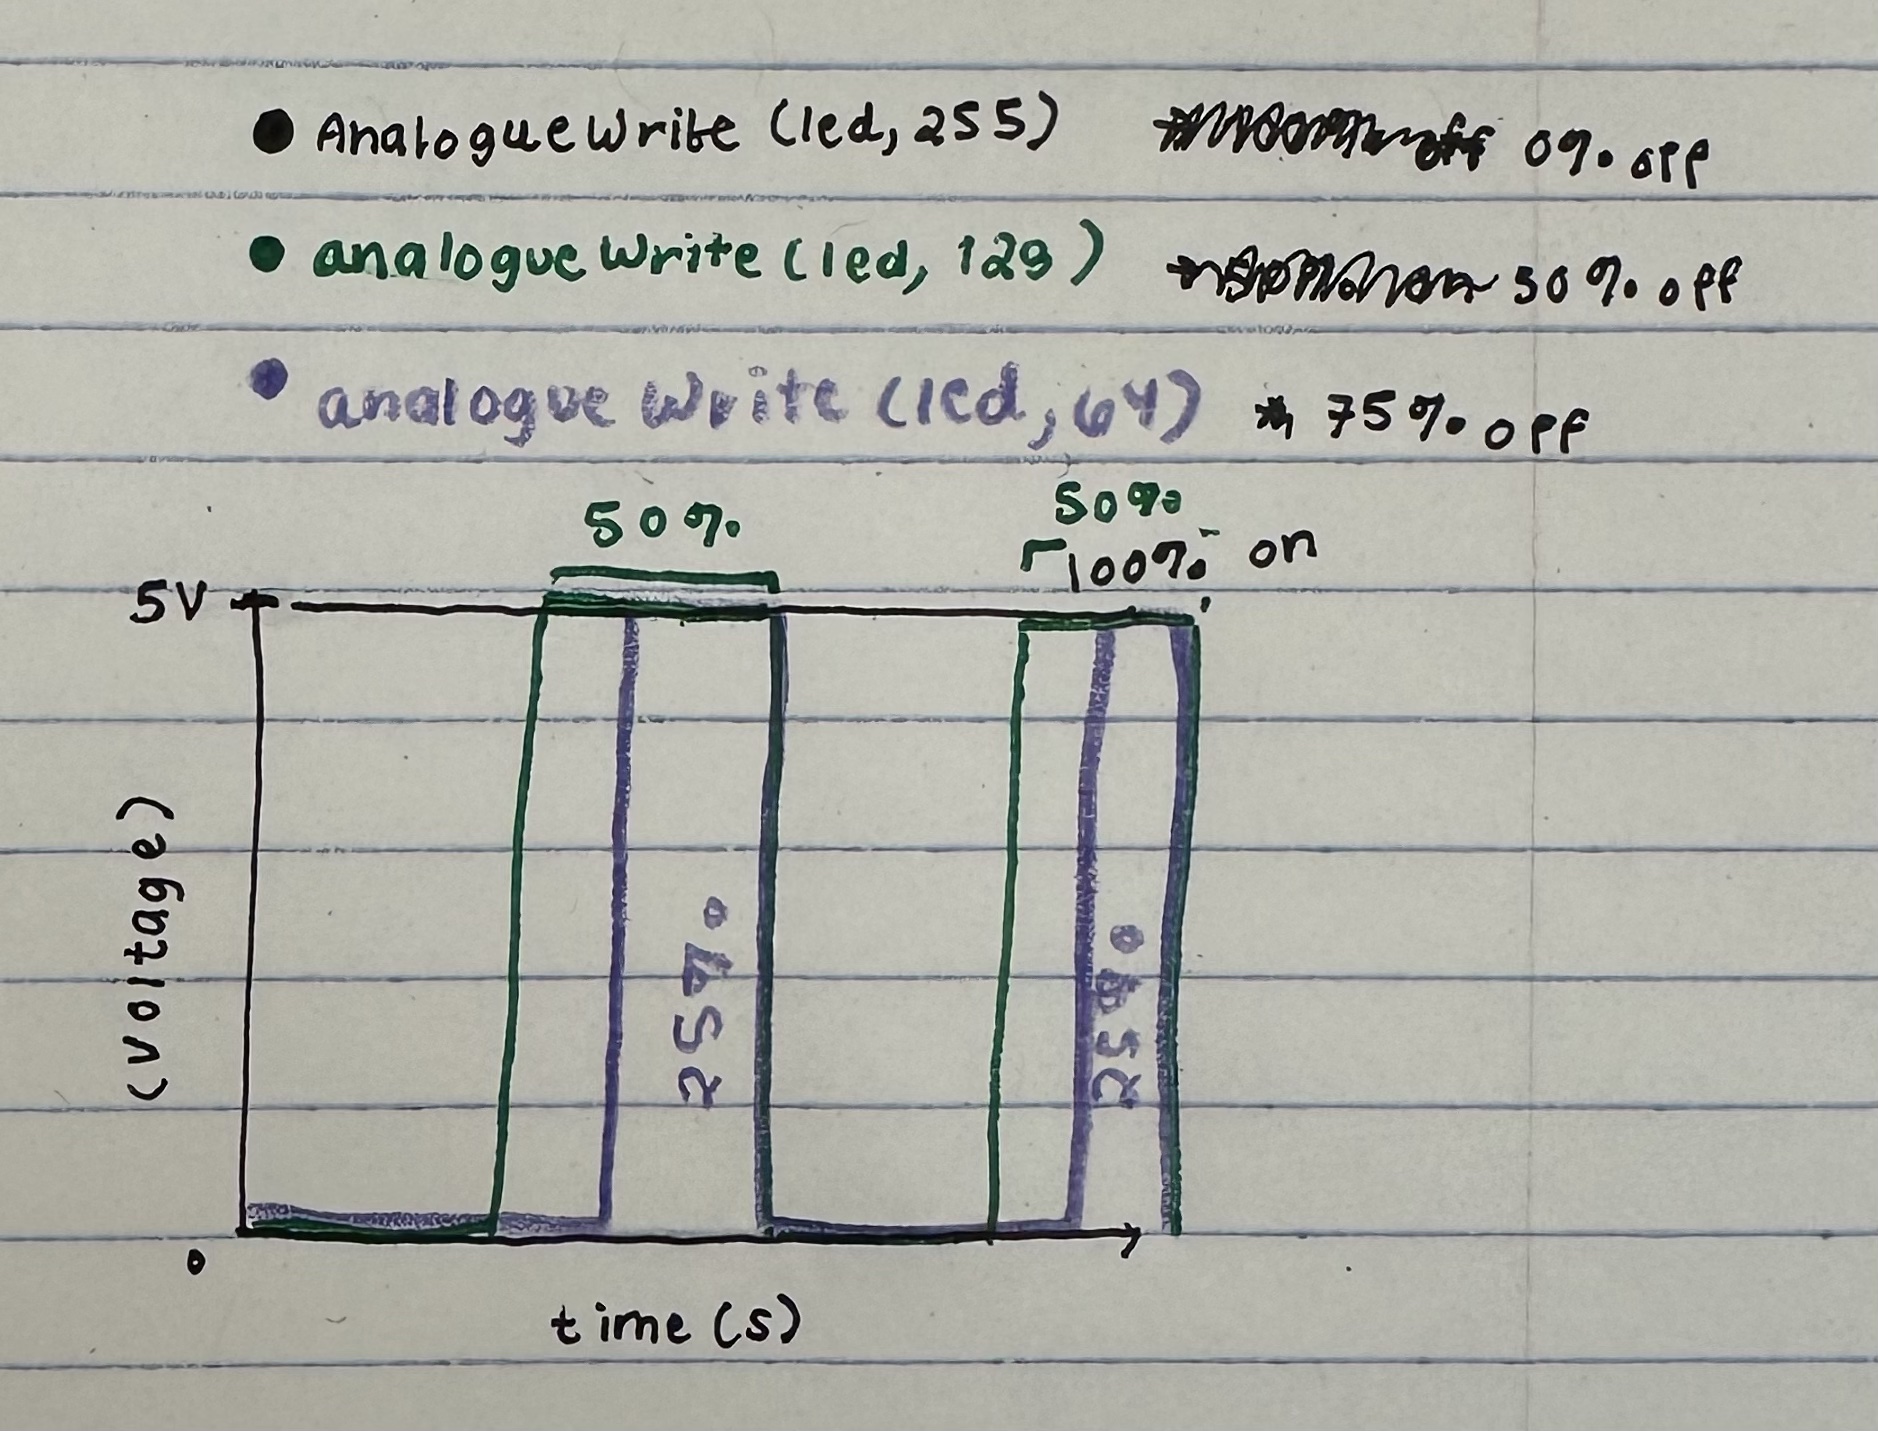 ● AnalogueWrite (led, 255) 0% off
● analogueWrite (led, 128) 50% off
● analogueWrite (led, 64) * 75% off
50% 50%
100% on
5V
(Voltage)
25% 25%
0
time (s)